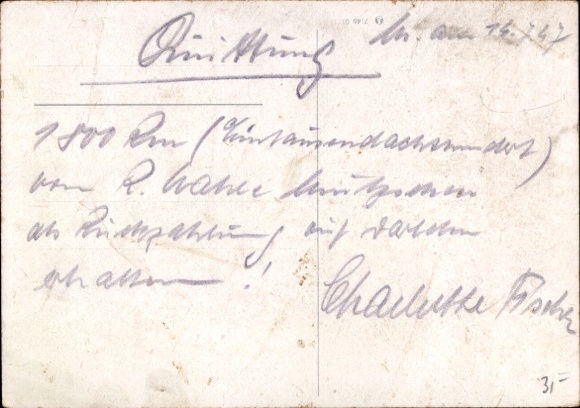 Quittung
M. am 14.7.47
1800 Rm (Eintausendachthundert)
von R. Mutzschen
als Rückzahlung auf Darlehen
erhalten!
Charlotte Fischer
31=